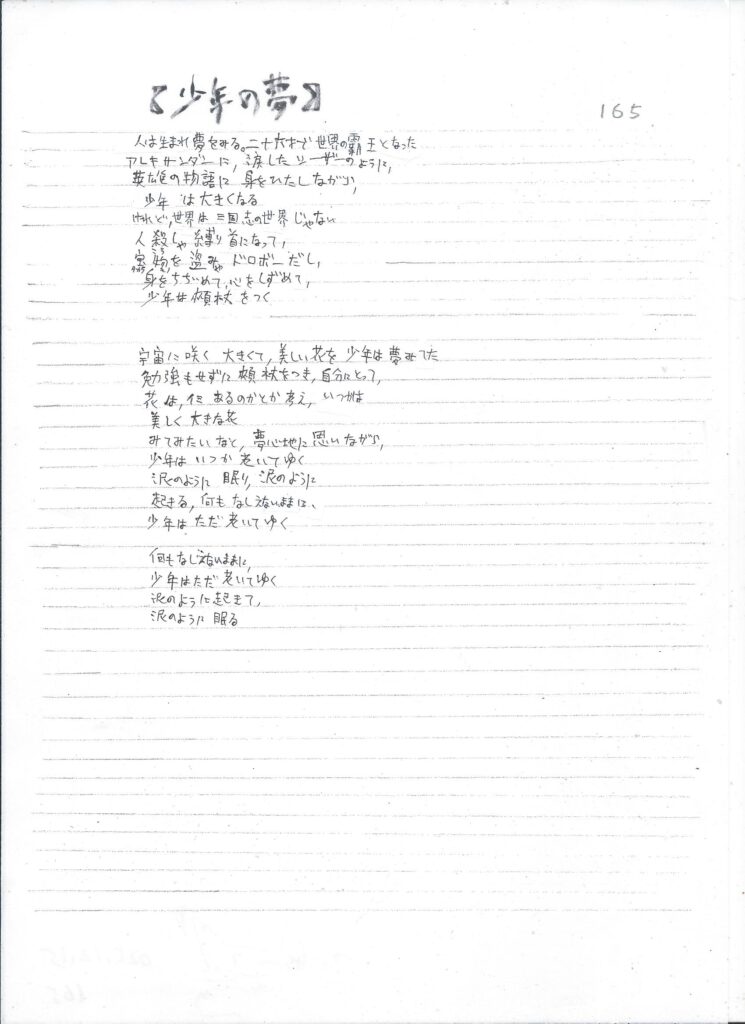 【少年の夢】
165
人は生まれ夢をみる。二十六才で世界の覇王となった
アレキサンダーに,涙したシーザーのように,
英雄の物語に身をひたしながら,
少年は大きくなる
けれど,世界は三国志の世界じゃない
人殺しゃ縛り首になって,
物を盗みゃドロボーだし,
身をちぢめて,心をしずめて,
少年は頬杖をつく
宇宙に咲く大きくて,美しい花を少年は夢みてた
勉強もせずに頬杖をつき,自分にとって,
花は,何であるのかとか考え,いつかは
美しく大きな花
みてみたいなと,夢心地に思いながら,
少年はいつか老いてゆく
泥のように眠り,泥のように
起きる,何もなしえないままに、
少年はただ老いてゆく
何もなしえないままに,
少年はただ老いてゆく
泥のように起きて,
泥のように眠る